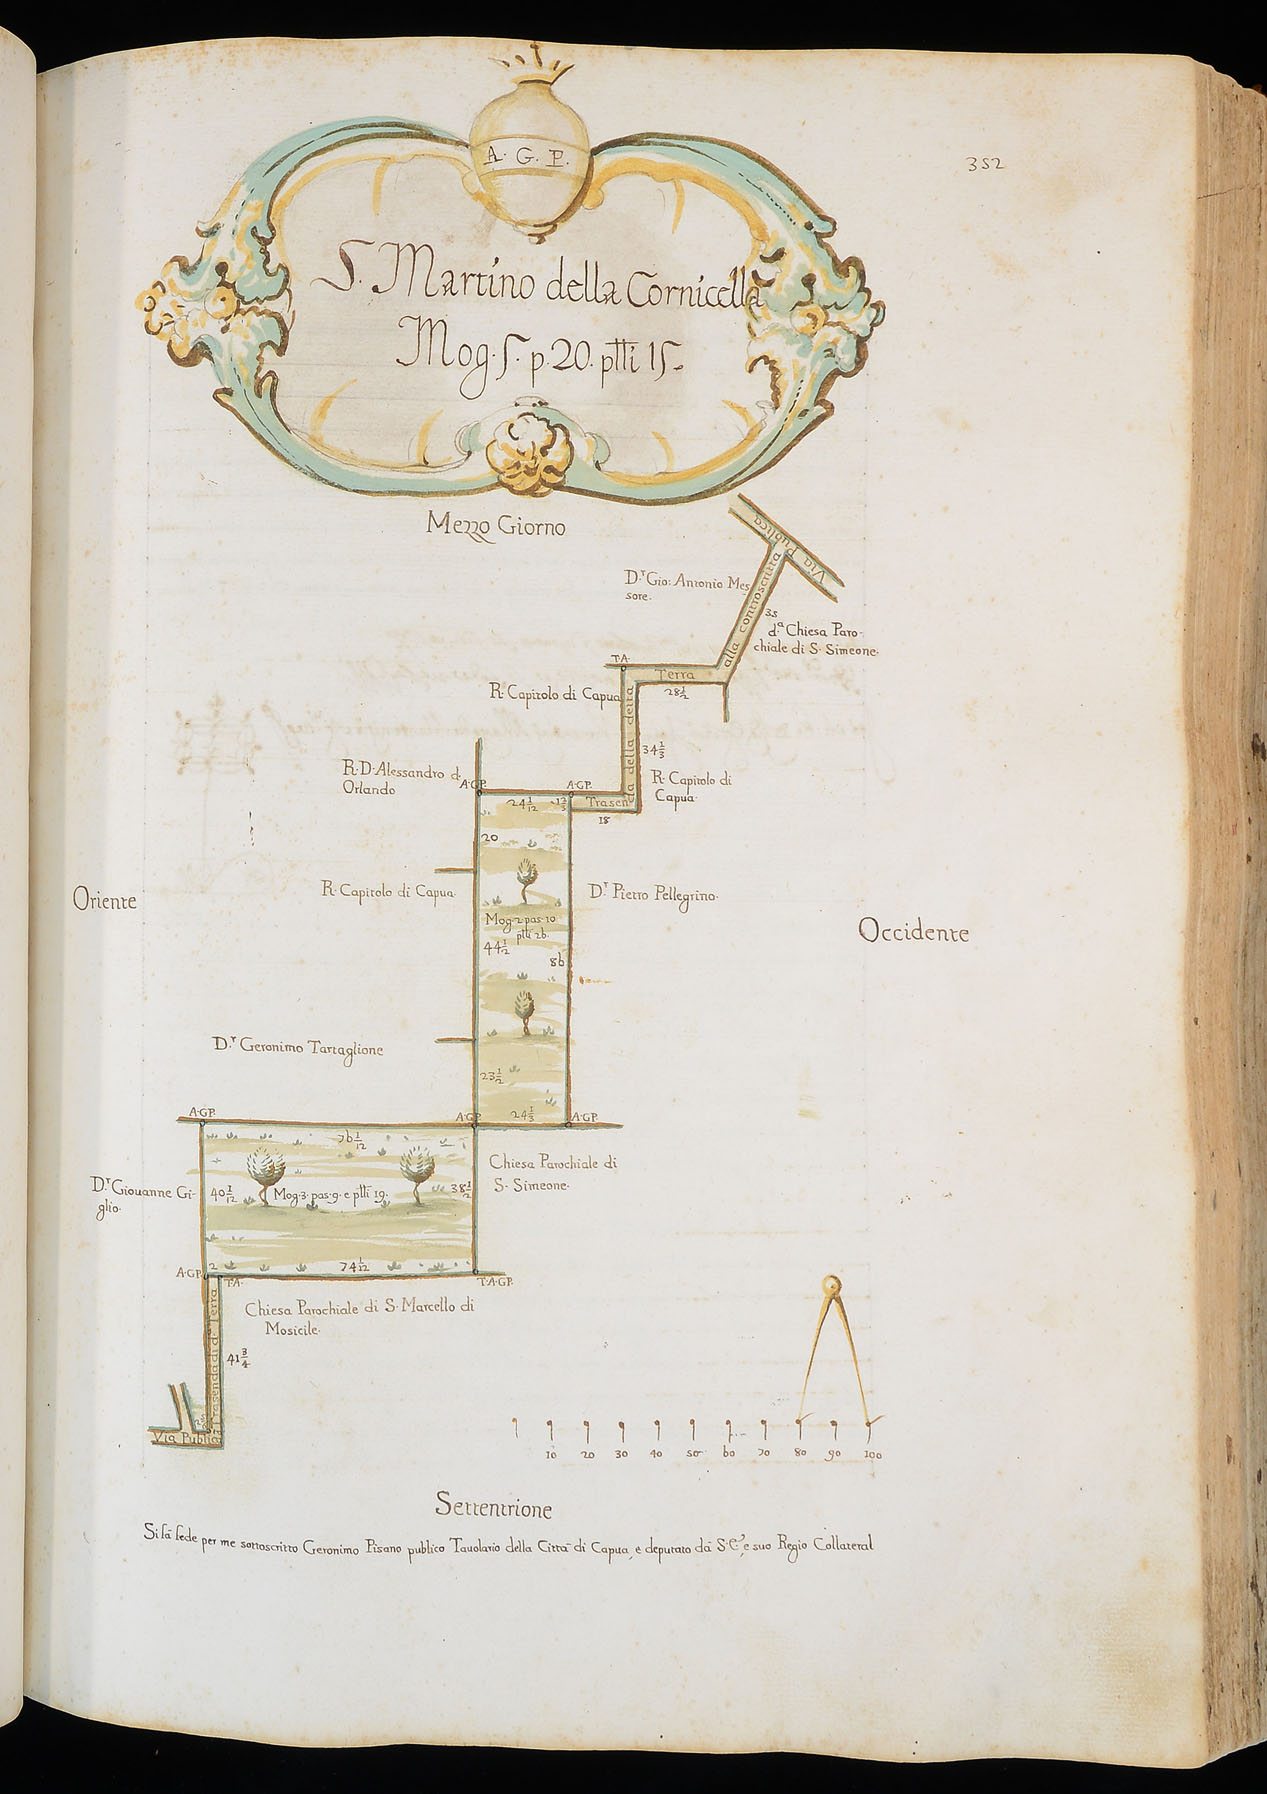 352
A. G. P.
S. Martino della Cornicella
Mog. 5. p. 20. ptti 15.
Mezzo Giorno
Via Publica
D.r Gio: Antonio Mes
sore.
alla controscritta
35
d.a Chiesa Paro-
chiale di S. Simeone.
T.A.
Terra
28 1/2
R. Capitolo di Capua
da della detta
34 1/3
R. D. Alessandro d.
Orlando
R. Capitolo di
Capua.
A.G.P.
A.G.P.
24 1/12
Trasen
18
20
R. Capitolo di Capua.
D.r Pietro Pellegrino.
Oriente
Mog. 2. pas. 10
ptti 26.
Occidente
44 1/2
86
D.r Geronimo Tartaglione
23 1/2
24 1/3
A.G.P.
A.G.P.
A.G.P.
76 1/12
Chiesa Parochiale di
S. Simeone.
D.r Giouanne Gi-
glio.
40 1/12
Mog. 3. pas. 9. e ptti 19.
38 1/2
2
74 1/12
A.G.P.
T.A.
T.A.G.P.
Chiesa Parochiale di S. Marcello di
Mosicile.
Trasenda di d.a Terra
41 3/4
Via Public
10 20 30 40 50 60 70 80 90 100
Settentrione
Si fà fede per me sottoscritto Geronimo Pisano publico Tauolario della Città di Capua, e deputato dà S. E., e suo Regio Collateral